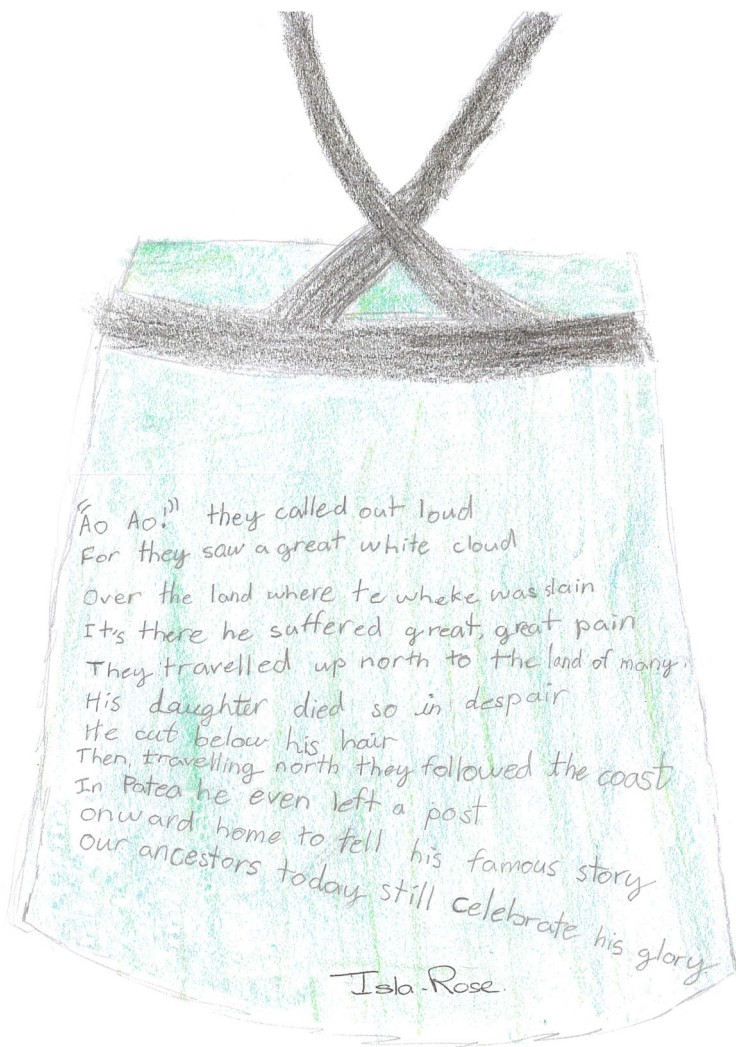 "Ao Ao!" they called out loud
For they saw a great white cloud
Over the land where te wheke was slain
It's there he suffered great, great pain
They travelled up north to the land of many.
His daughter died so in despair
He cut below his hair
Then, travelling north they followed the coast
In Patea he even left a post
onward home to tell his famous story
Our ancestors today still celebrate his glory
Isla-Rose.